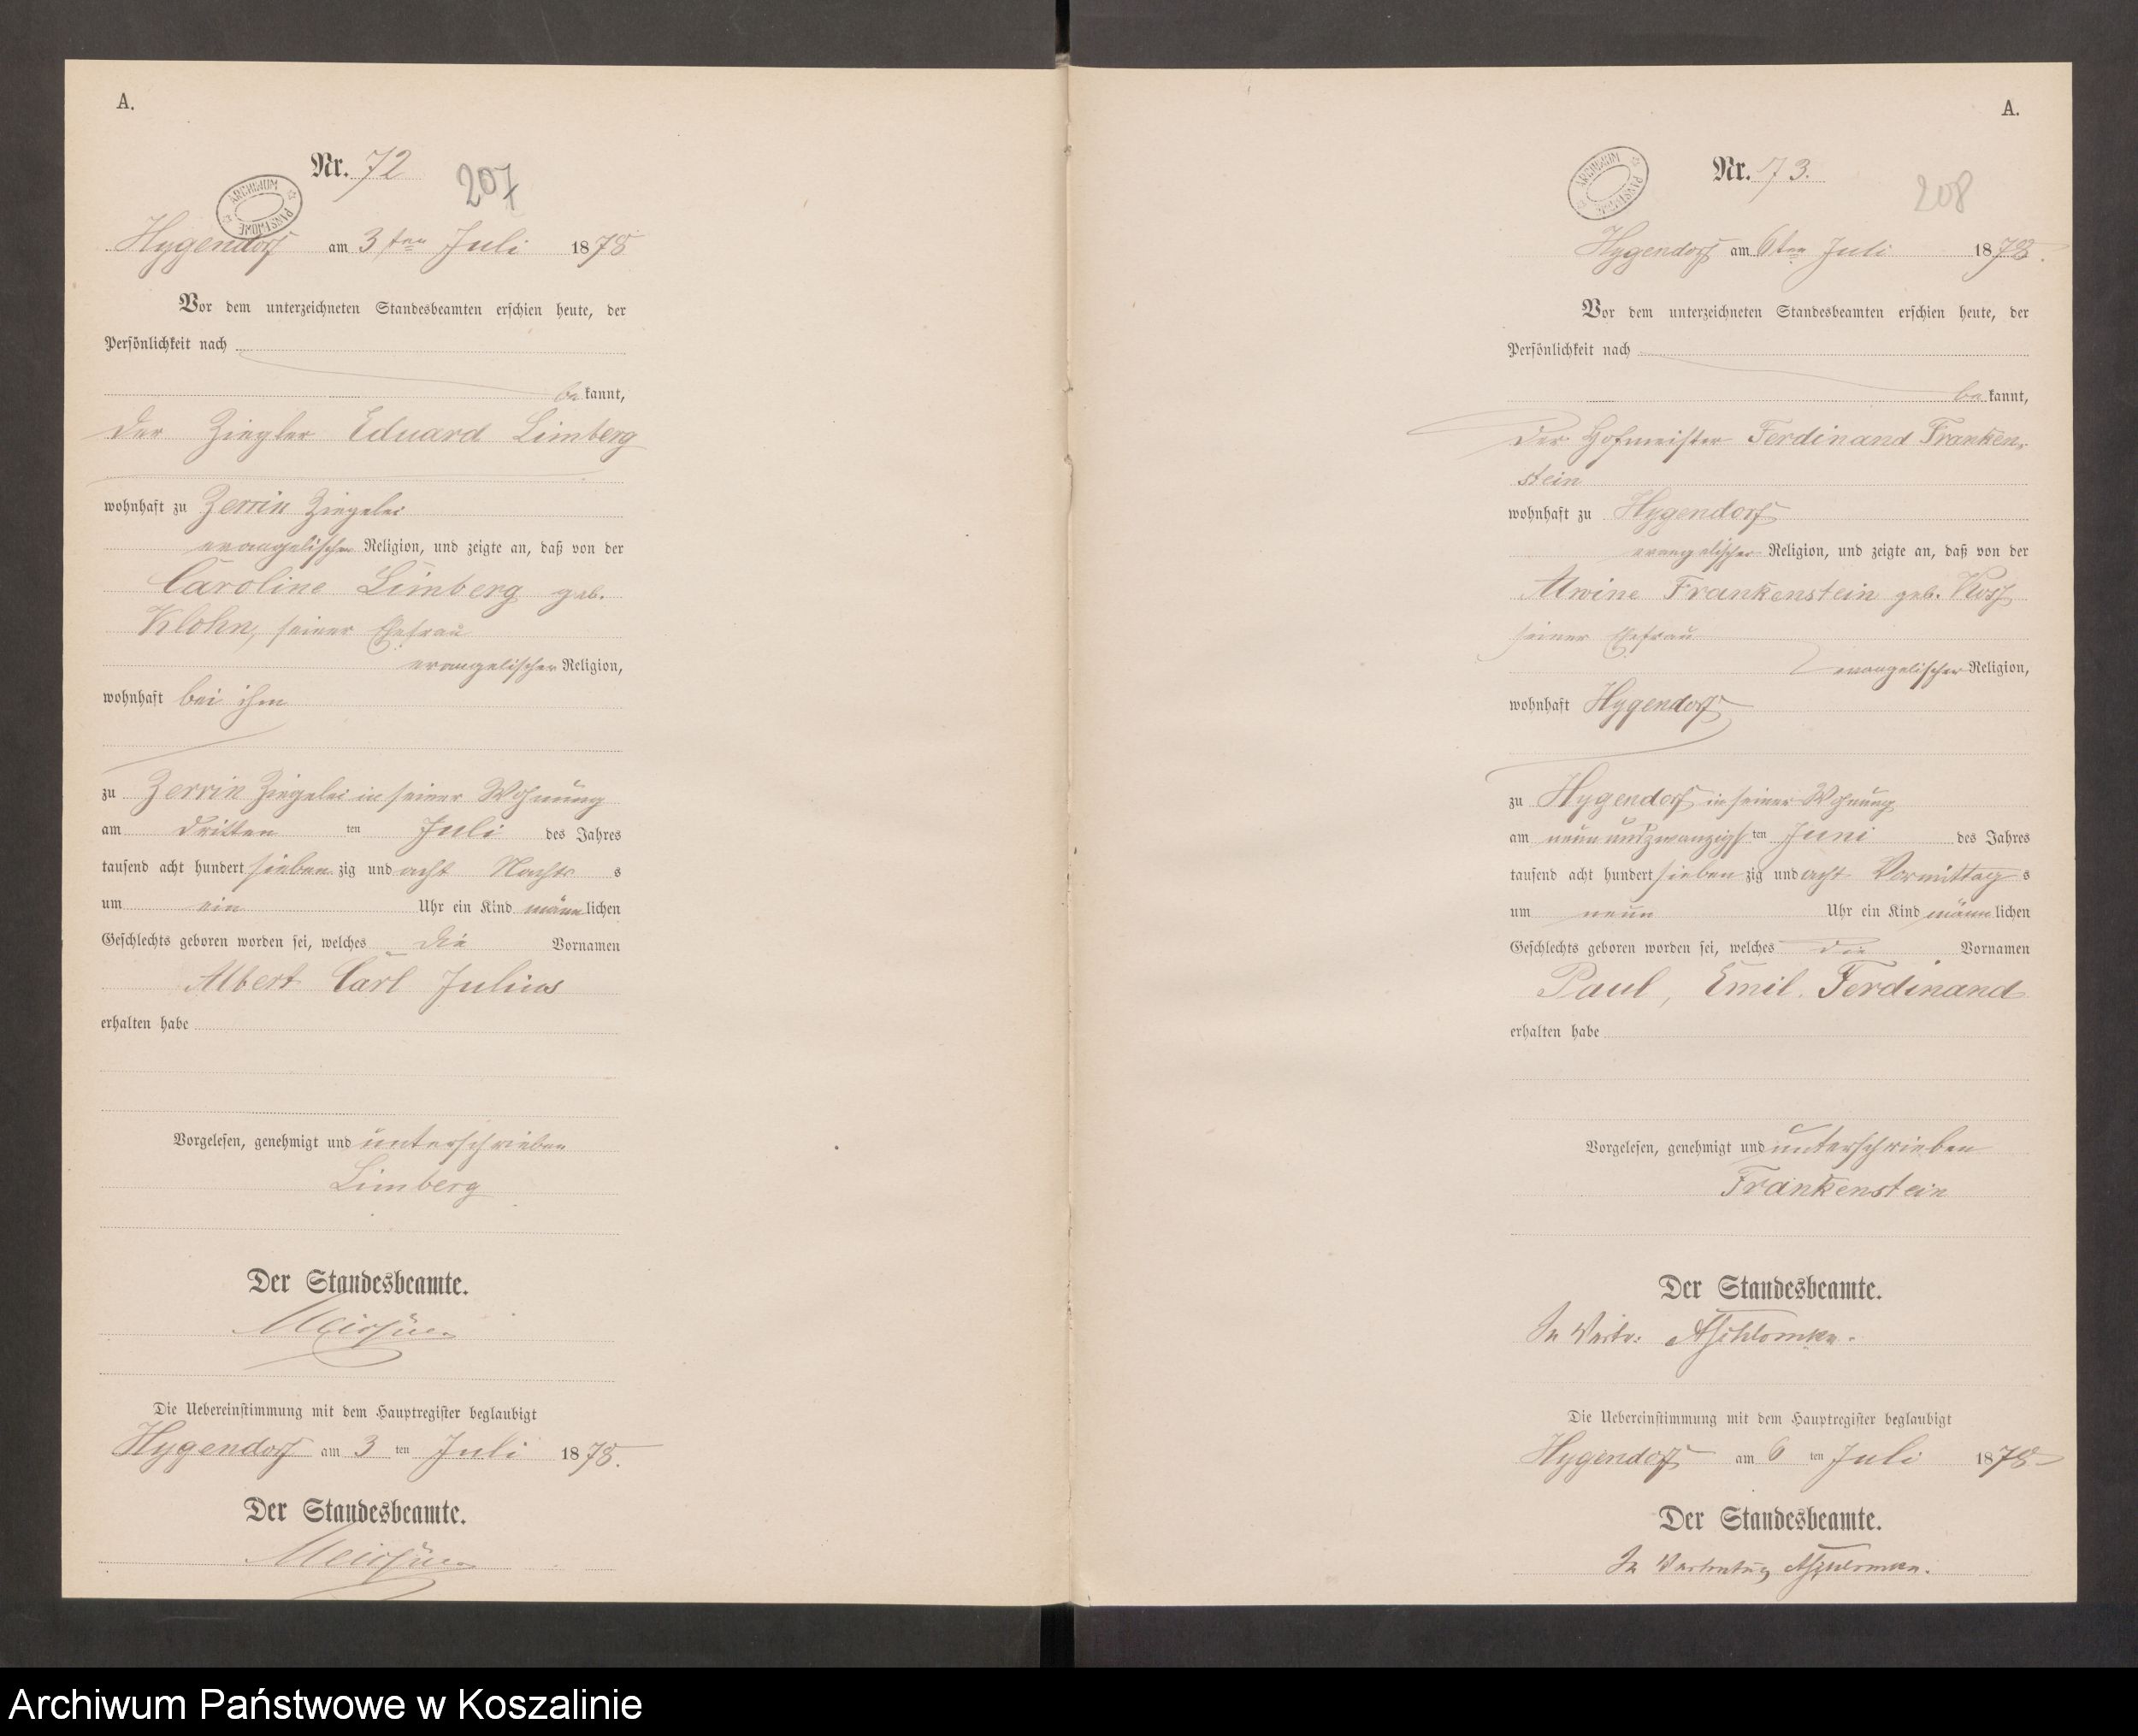 A.
Nr. 72
207
ARCHIWUM PAŃSTWOWE
Hygendorf am 3ten Juli 1878
Vor dem unterzeichneten Standesbeamten erschien heute, der
Persönlichkeit nach
be kannt,
der Ziegler Eduard Limberg
wohnhaft zu Zerrin Ziegelei
evangelischer Religion, und zeigte an, daß von der
Caroline Limberg geb.
Klohn, seiner Ehefrau
evangelischer Religion,
wohnhaft bei ihm
zu Zerrin Ziegelei in seiner Wohnung
am dritten ten Juli des Jahres
tausend acht hundert sieben zig und acht Nachts s
um ein Uhr ein Kind männ lichen
Geschlechts geboren worden sei, welches die Vornamen
Albert Carl Julius
erhalten habe
Vorgelesen, genehmigt und unterschrieben
Limberg
Der Standesbeamte.
Die Uebereinstimmung mit dem Hauptregister beglaubigt
Hygendorf am 3 ten Juli 1878.
Der Standesbeamte.
A.
Nr. 73.
208
ARCHIWUM PAŃSTWOWE
Hygendorf am 6ten Juli 1878.
Vor dem unterzeichneten Standesbeamten erschien heute, der
Persönlichkeit nach
be kannt,
der Hofmeister Ferdinand Franken-
stein
wohnhaft zu Hygendorf
evangelischer Religion, und zeigte an, daß von der
Alwine Frankenstein geb.
seiner Ehefrau
evangelischer Religion,
wohnhaft Hygendorf
zu Hygendorf in seiner Wohnung
am neun und zwanzigs ten Juni des Jahres
tausend acht hundert sieben zig und acht Vormittag s
um neun Uhr ein Kind männ lichen
Geschlechts geboren worden sei, welches die Vornamen
Paul, Emil Ferdinand
erhalten habe
Vorgelesen, genehmigt und unterschrieben
Frankenstein
Der Standesbeamte.
In Vertr:
Die Uebereinstimmung mit dem Hauptregister beglaubigt
Hygendorf am 6 ten Juli 1878
Der Standesbeamte.
In Vertretung
Archiwum Państwowe w Koszalinie